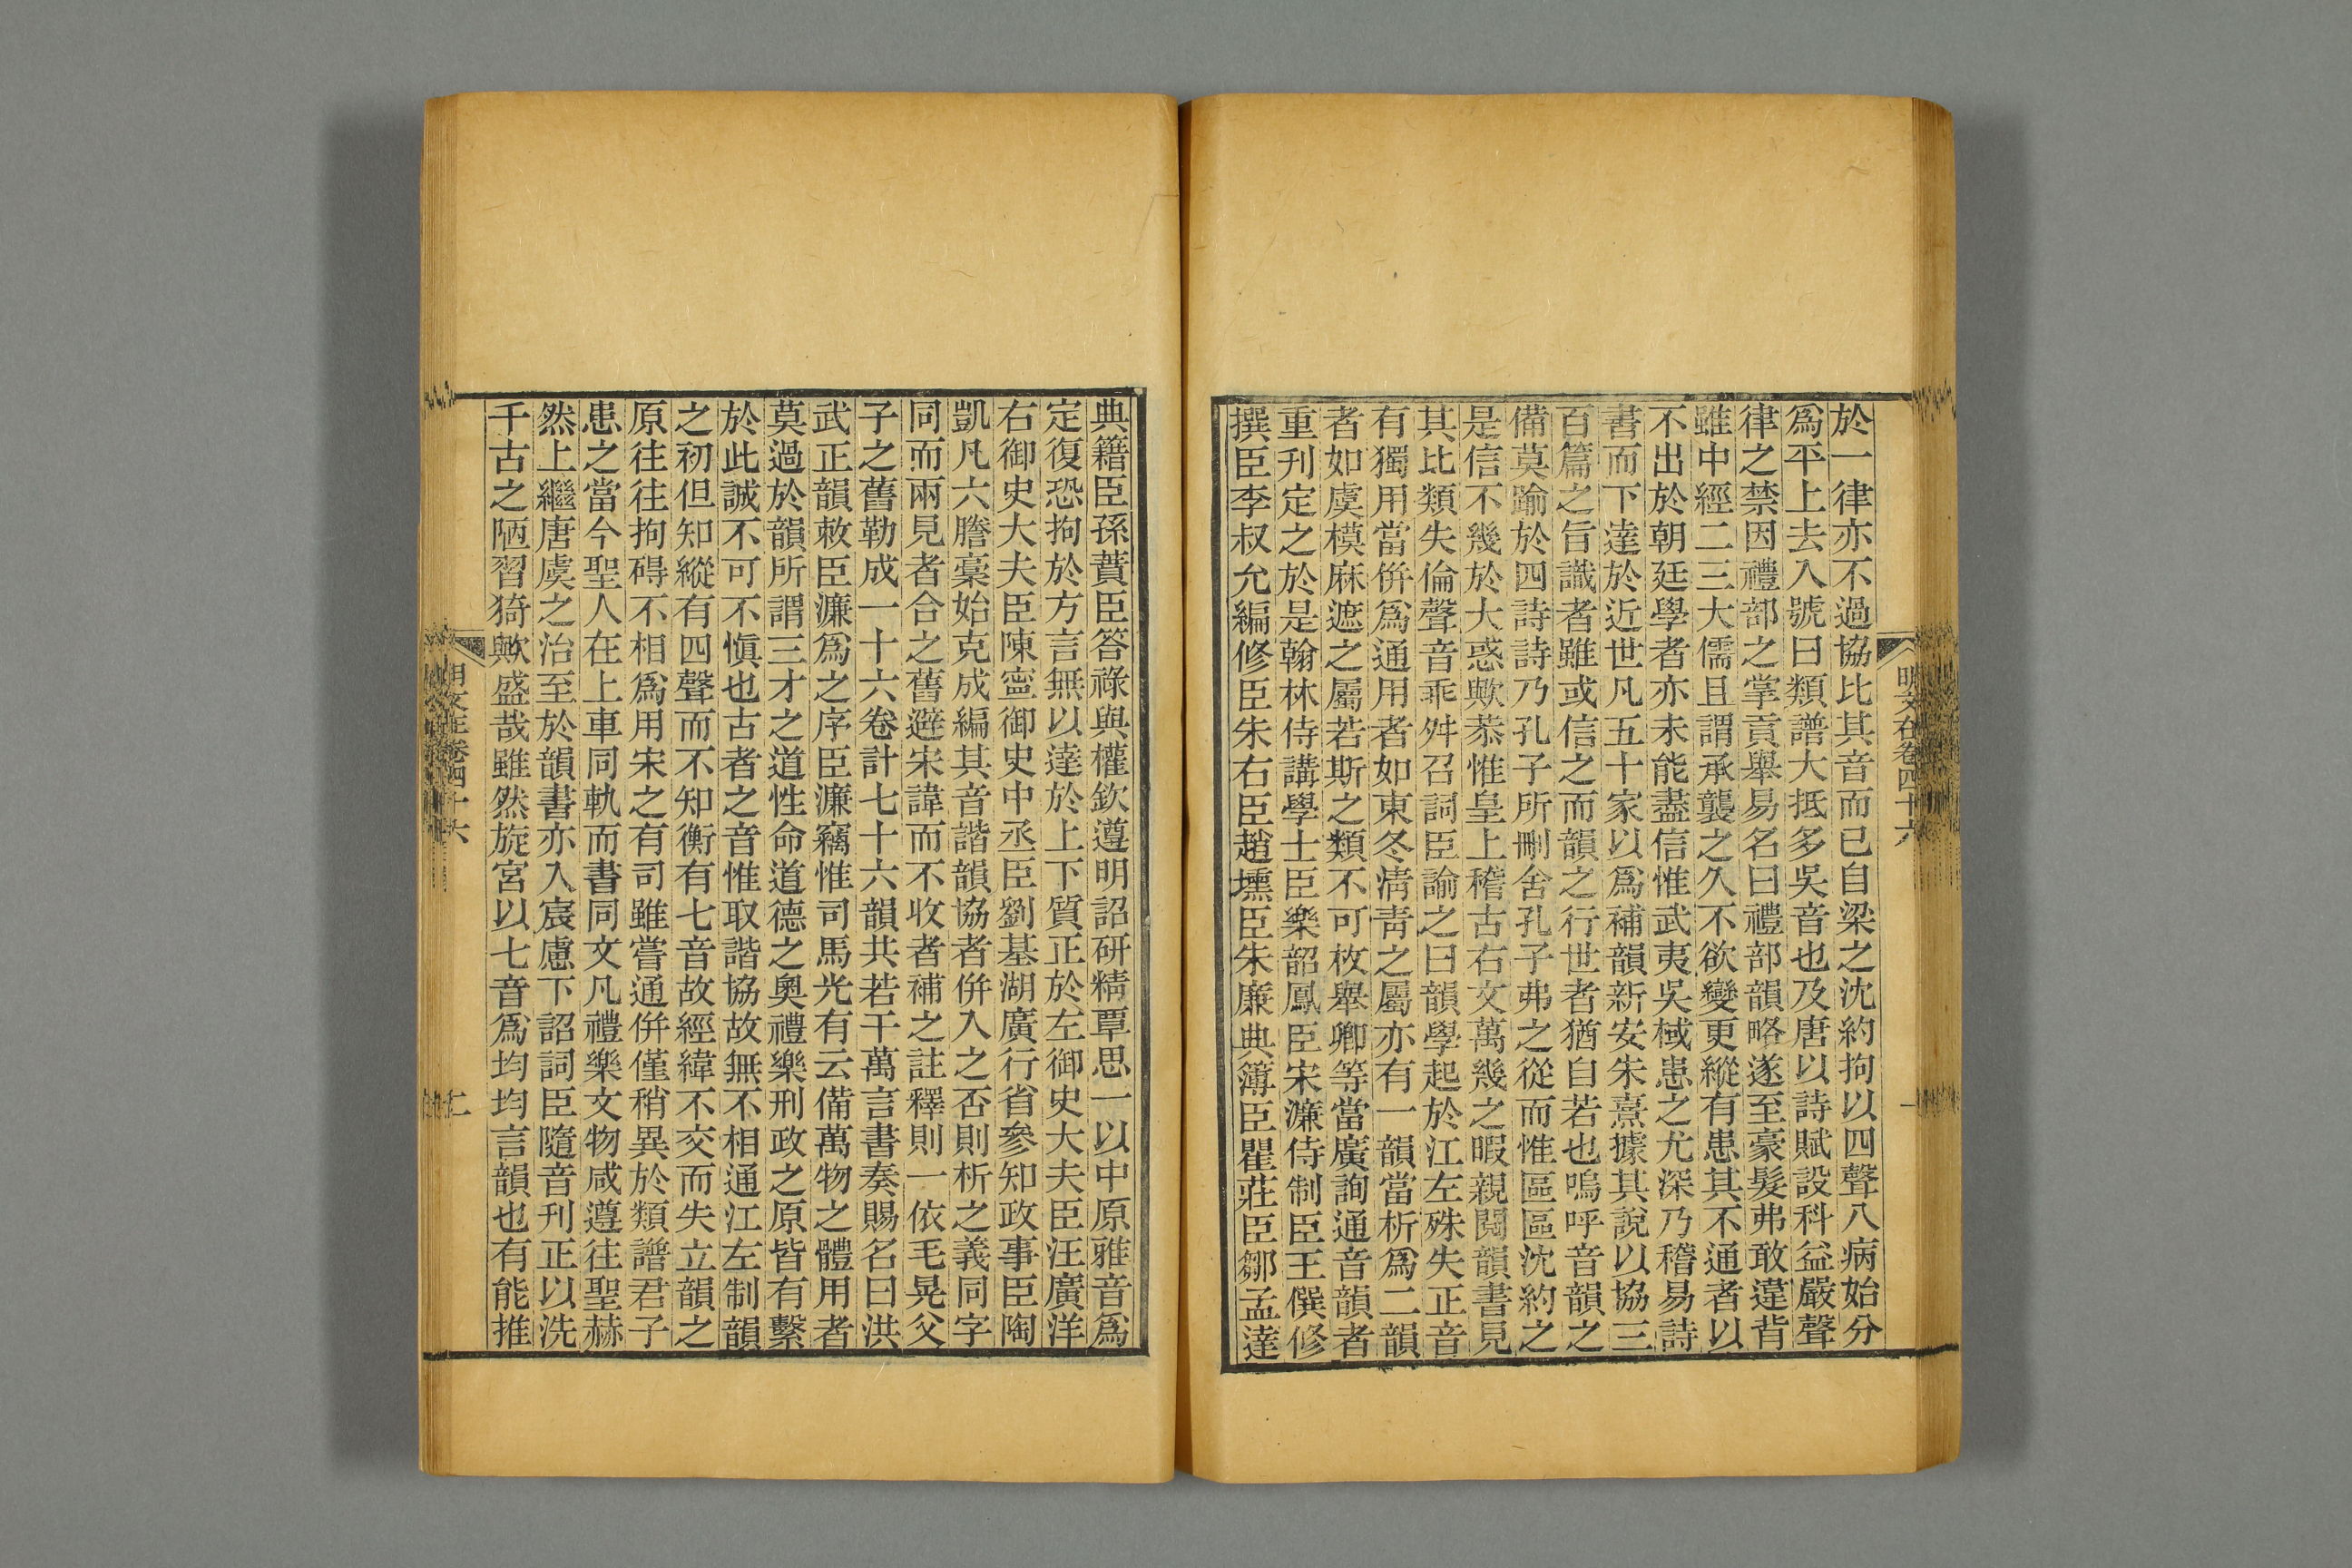 於一律亦不過協比其音而已自梁之沈約拘以四聲八病始分
爲平上去入號曰類譜大抵多吳音也及唐以詩賦設科益嚴聲
律之禁因禮部之掌貢舉易名曰禮部韻略遂至豪髮弗敢違背
雖中經二三大儒且謂承襲之久不欲變更縱有患其不通者以
不出於朝廷學者亦未能盡信惟武夷吳棫患之尤深乃稽易詩
書而下達於近世凡五十家以爲補韻新安朱熹據其說以協三
百篇之旨識者雖或信之而韻之行世者猶自若也嗚呼音韻之
備莫踰於四詩詩乃孔子所刪舍孔子弗之從而惟區區沈約之
是信不幾於大惑歟恭惟皇上稽古右文萬幾之暇親閱韻書見
其比類失倫聲音乖舛召詞臣諭之曰韻學起於江左殊失正音
有獨用當併爲通用者如東冬淸靑之屬亦有一韻當析爲二韻
者如虞模麻遮之屬若斯之類不可枚舉卿等當廣詢通音韻者
重刊定之於是翰林侍講學士臣樂韶鳳臣宋濂侍制臣王僎修
撰臣李叔允編修臣朱右臣趙壎臣朱廉典簿臣瞿莊臣鄒孟達
明文在卷四十六
一
典籍臣孫蕡臣答祿與權欽遵明詔研精覃思一以中原雅音爲
定復恐拘於方言無以達於上下質正於左御史大夫臣汪廣洋
右御史大夫臣陳寍御史中丞臣劉基湖廣行省參知政事臣陶
凱凡六謄稾始克成編其音諧韻協者併入之否則析之義同字
同而兩見者合之舊避宋諱而不收者補之註釋則一依毛晃父
子之舊勒成一十六卷計七十六韻共若干萬言書奏賜名曰洪
武正韻敕臣濂爲之序臣濂竊惟司馬光有云備萬物之體用者
莫過於韻所謂三才之道性命道德之奧禮樂刑政之原皆有繫
於此誠不可不愼也古者之音惟取諧協故無不相通江左制韻
之初但知縱有四聲而不知衡有七音故經緯不交而失立韻之
原往往拘碍不相爲用宋之有司雖嘗通併僅稍異於類譜君子
患之當今聖人在上車同軌而書同文凡禮樂文物咸遵往聖赫
然上繼唐虞之治至於韻書亦入宸慮下詔詞臣隨音刊正以洗
千古之陋習猗歟盛哉雖然旋宮以七音爲均均言韻也有能推
明文在卷四十六
二